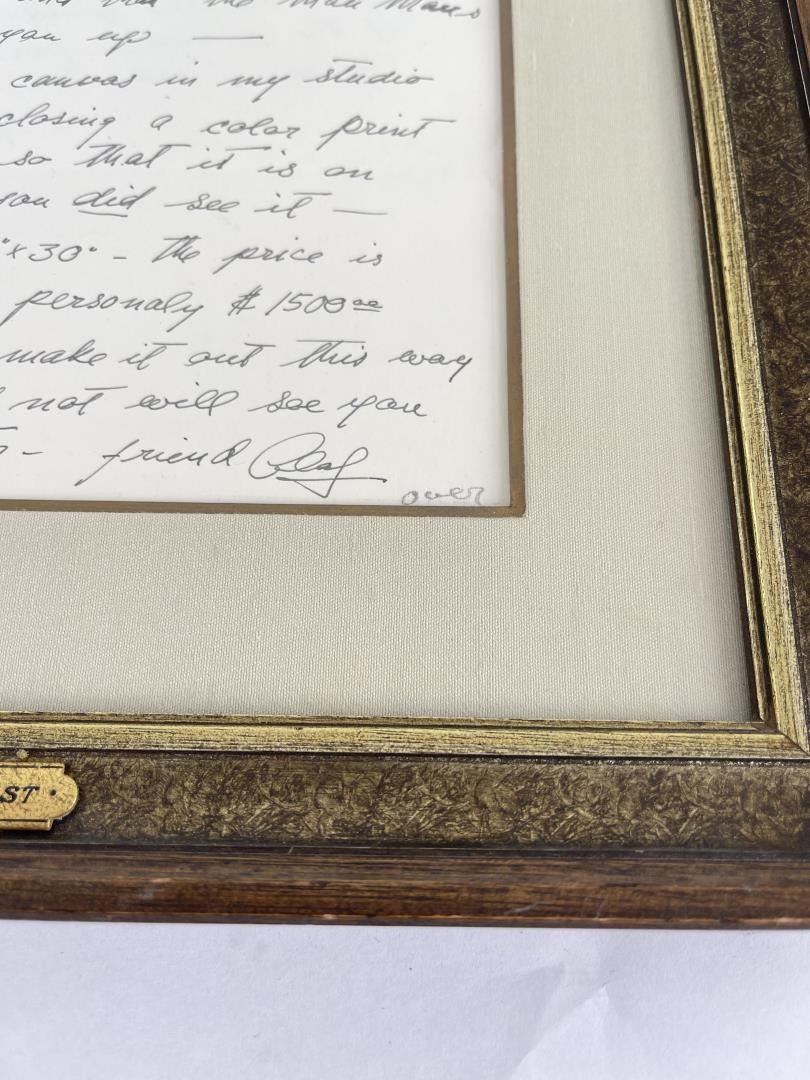 the man
you up —
canvas in my studio
closing a color print
so that it is on
you did see it —
"x 30" - the price is
personaly $1500 00
make it out this way
not will see you
- friend Olaf
over
ST .